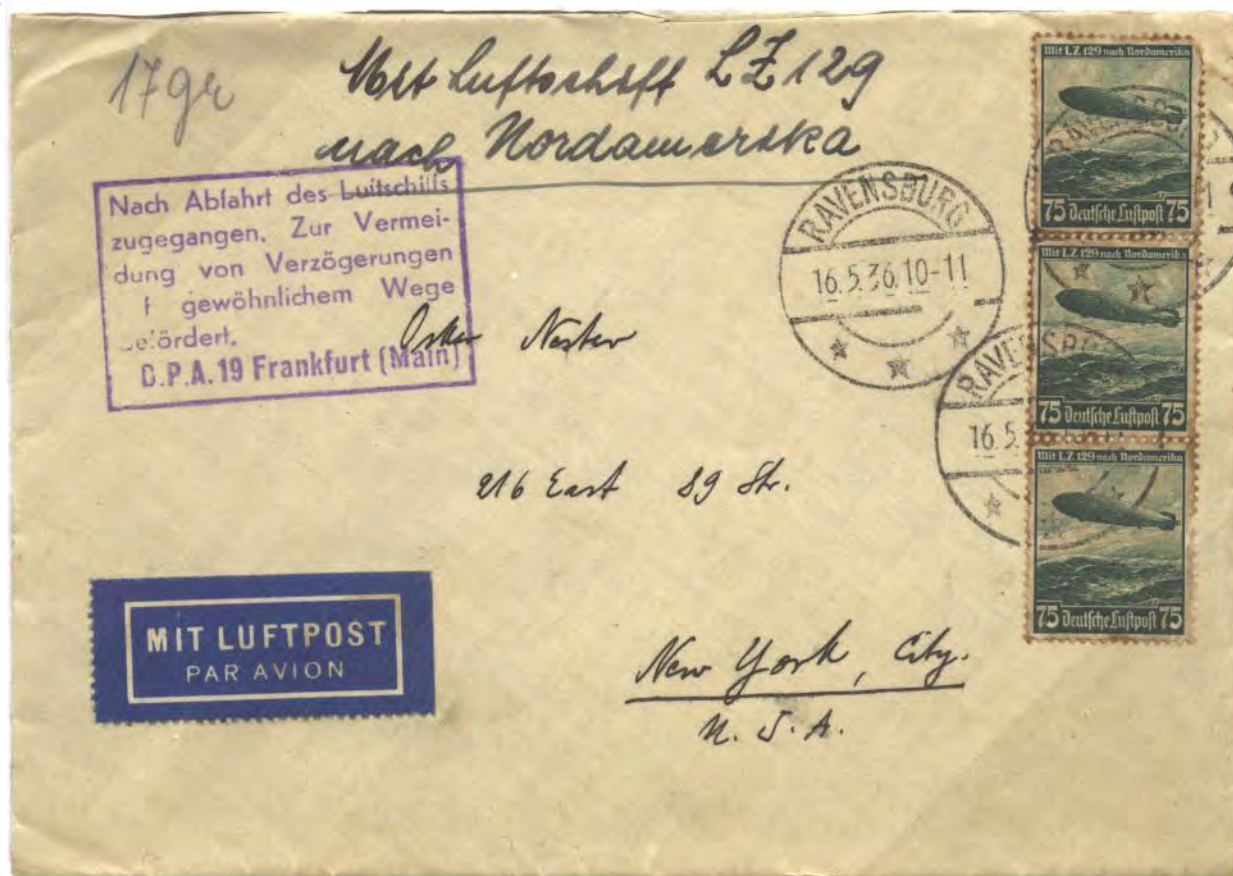 17 gr
Mit Luftschiff LZ 129
nach Nordamerika
Nach Abfahrt des Luftschiffs
zugegangen. Zur Vermei-
dung von Verzögerungen
f gewöhnlichem Wege
efördert.
P.A. 19 Frankfurt (Main)
RAVENSBURG
16.5.36.10-11
RAVENSBU
16.5
Mit LZ 129 nach Nordamerika
75 Deutsche Luftpost 75
Mit LZ 129 nach Nordamerika
75 Deutsche Luftpost 75
Mit LZ 129 nach Nordamerika
75 Deutsche Luftpost 75
Oskar Nester
216 East 89 Str.
MIT LUFTPOST
PAR AVION
New York, City.
U.S.A.